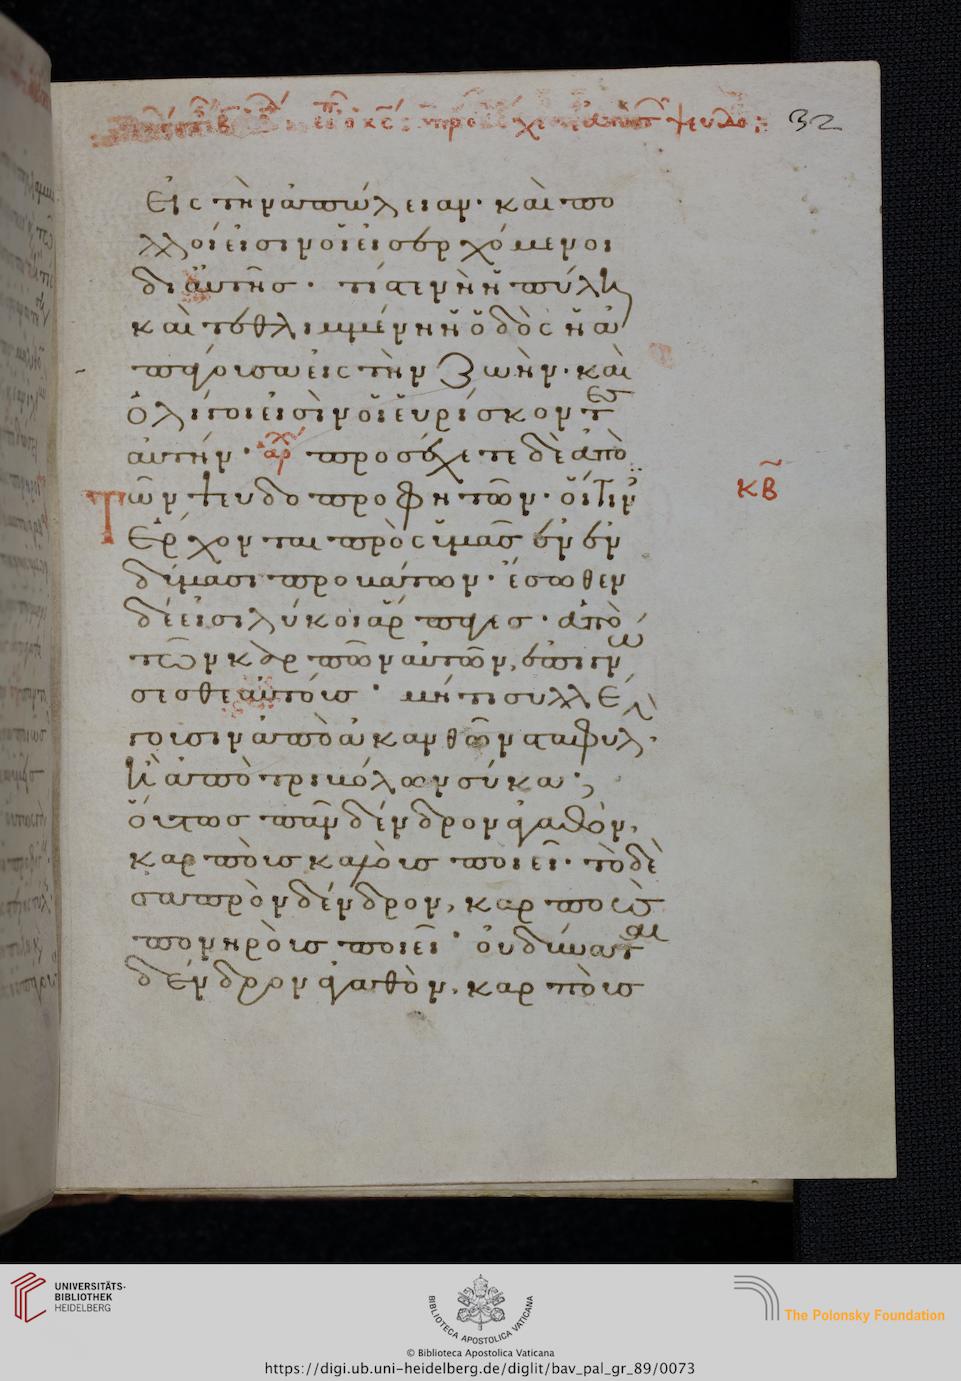 εἶπεν ὁ κς προσέχετε ἀπὸ τ ψευδο: 32
εἰς τὴν ἀπώλειαν· καὶ πο
λλοί εἰσιν οἱ εἰσερχόμενοι
δι αὐτῆς· τί στενὴ ἡ πύλη
καὶ τεθλιμμένη ἡ ὁδὸς ἡ ἀ
πάγουσα εἰς τὴν ζωὴν· καὶ
ὀλίγοι εἰσὶν οἱ εὑρίσκοντες
αὐτήν· ἀρχ προσέχετε δὲ ἀπὸ
τῶν ψευδοπροφητῶν· οἵτιν
κβ
ἔρχονται πρὸς ὑμᾶς ἐν ἐν
δύμασι προβάτων· ἔσωθεν
δέ εἰσι λύκοι ἅρπαγες· ἀπὸ
τῶν καρπῶν αὐτῶν, ἐπιγνώ
σεσθε αὐτούς· μήτι συλλέ
γουσιν ἀπὸ ἀκανθῶν σταφυλ
ὴ ἀπὸ τριβόλων σύκα;
οὕτως πᾶν δένδρον ἀγαθὸν,
καρποὺς καλοὺς ποιεῖ· τὸ δὲ
σαπρὸν δένδρον, καρποὺς
πονηροὺς ποιεῖ· οὐ δύναται
δένδρον ἀγαθὸν, καρποὺς
UNIVERSITÄTS-
BIBLIOTHEK
HEIDELBERG
BIBLIOTECA APOSTOLICA VATICANA
© Biblioteca Apostolica Vaticana
The Polonsky Foundation
https://digi.ub.uni-heidelberg.de/diglit/bav_pal_gr_89/0073